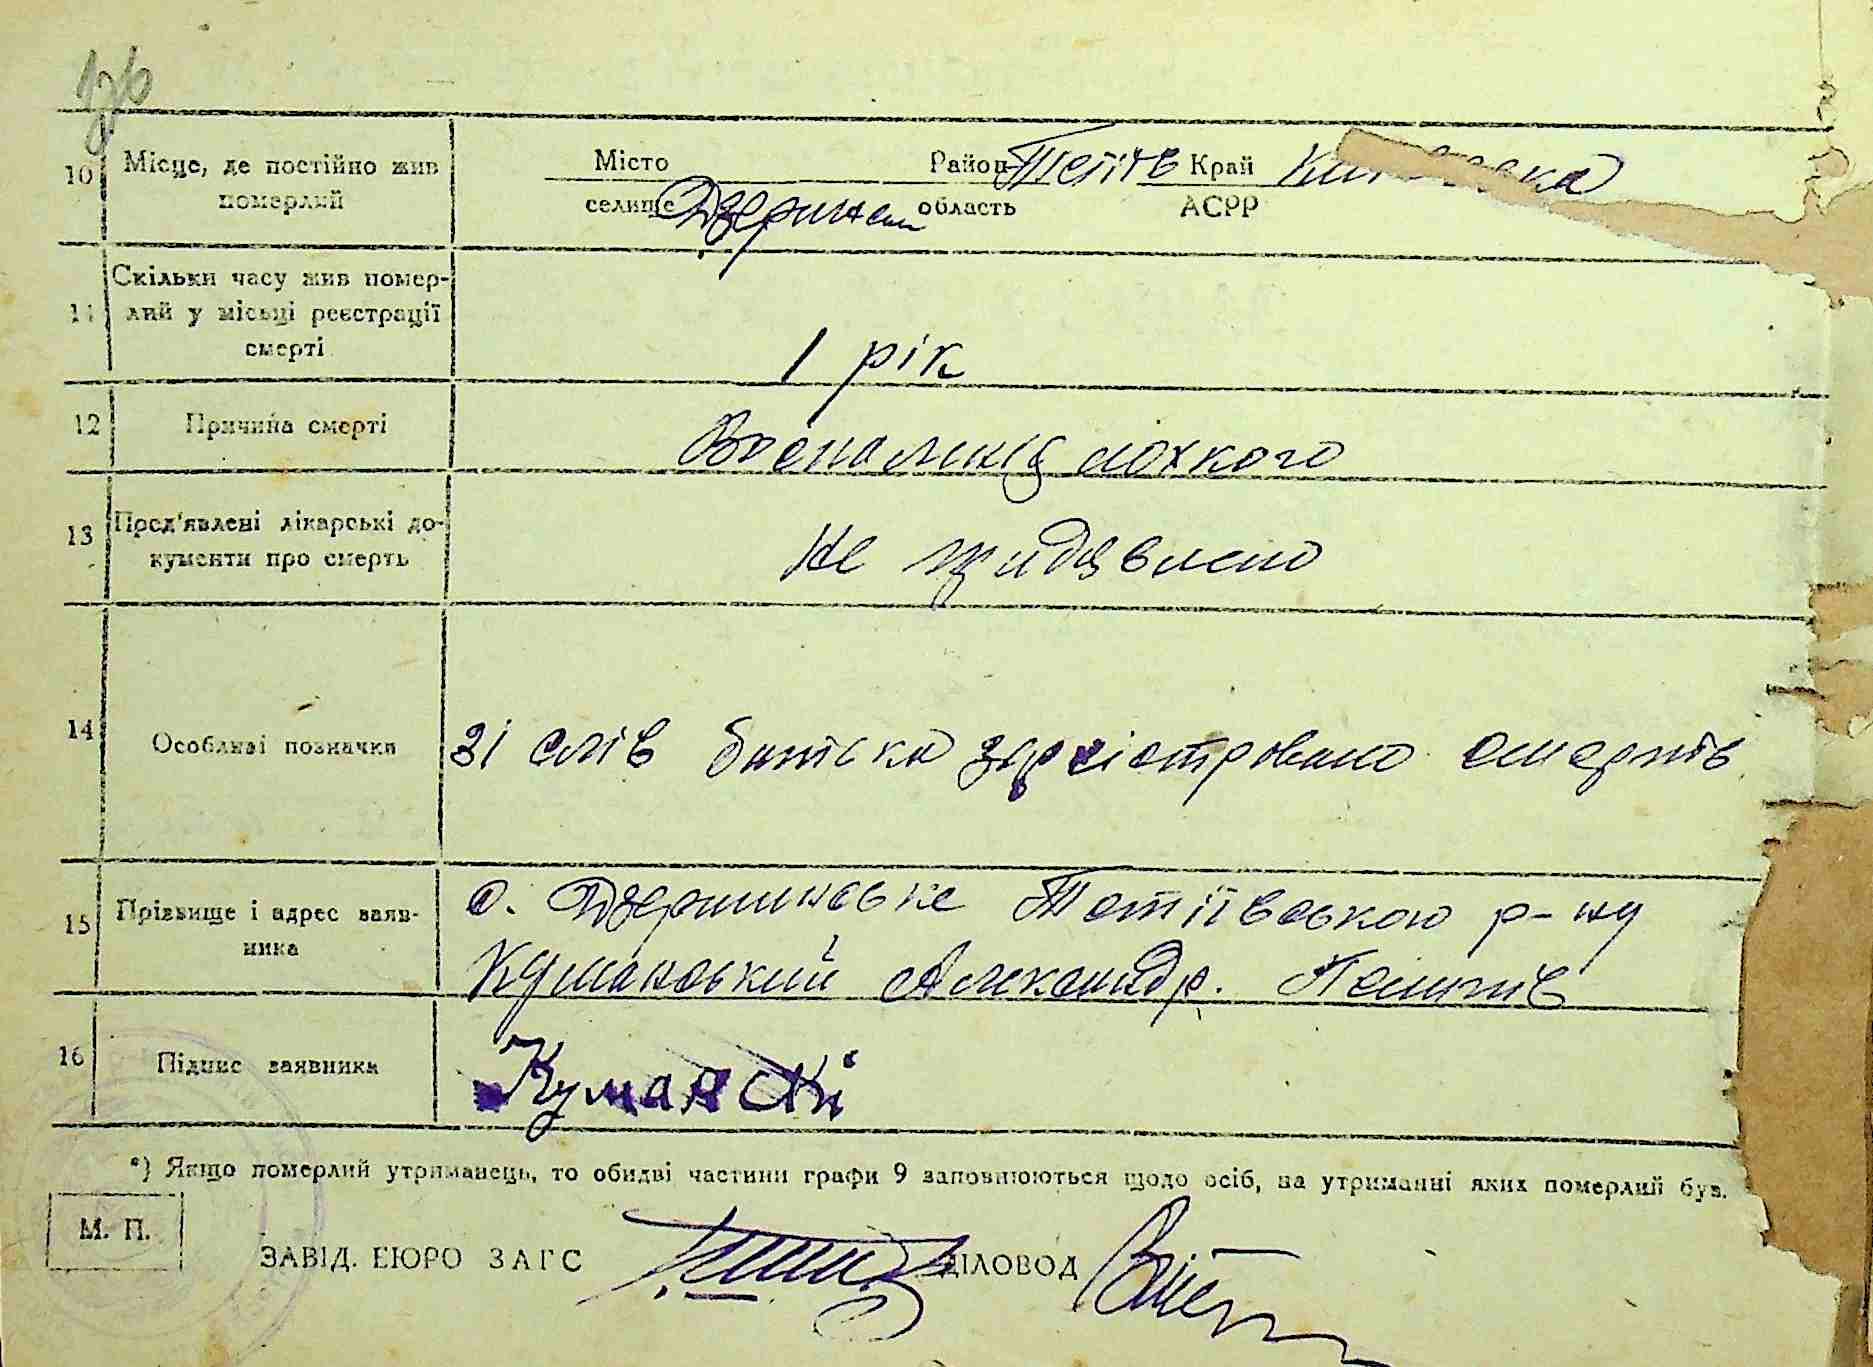 10 Місце, де постійно жив померлий
Місто селище Район Тетіїв область Край АСРР
11 Скільки часу жив помер-
лий у місьці реєстрації
смерті
1 рік
12 Причина смерті
лохкого
13 Пред'явлені лікарські до-
кументи про смерть
Не придявлено
14 Особливі позначки
зі слів батька зареістровано смерть
15 Прізвище і адрес заяв-
ника
с. Дзержинське Тетіївською р-ну
Куманський Александр.
16 Підпис заявника
Куманскі
*) Якщо померлий утриманець, то обидві частини графи 9 заповнюються щодо осіб, на утриманні яких померлий був.
М. П.
ЗАВІД. БЮРО ЗАГС
ДІЛОВОД